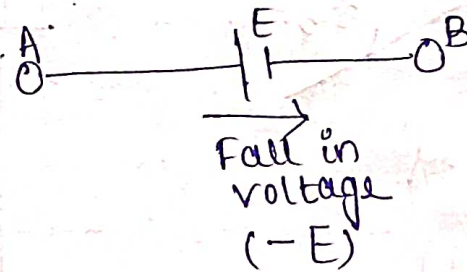 A
E
B
Fall in
voltage
(-E)